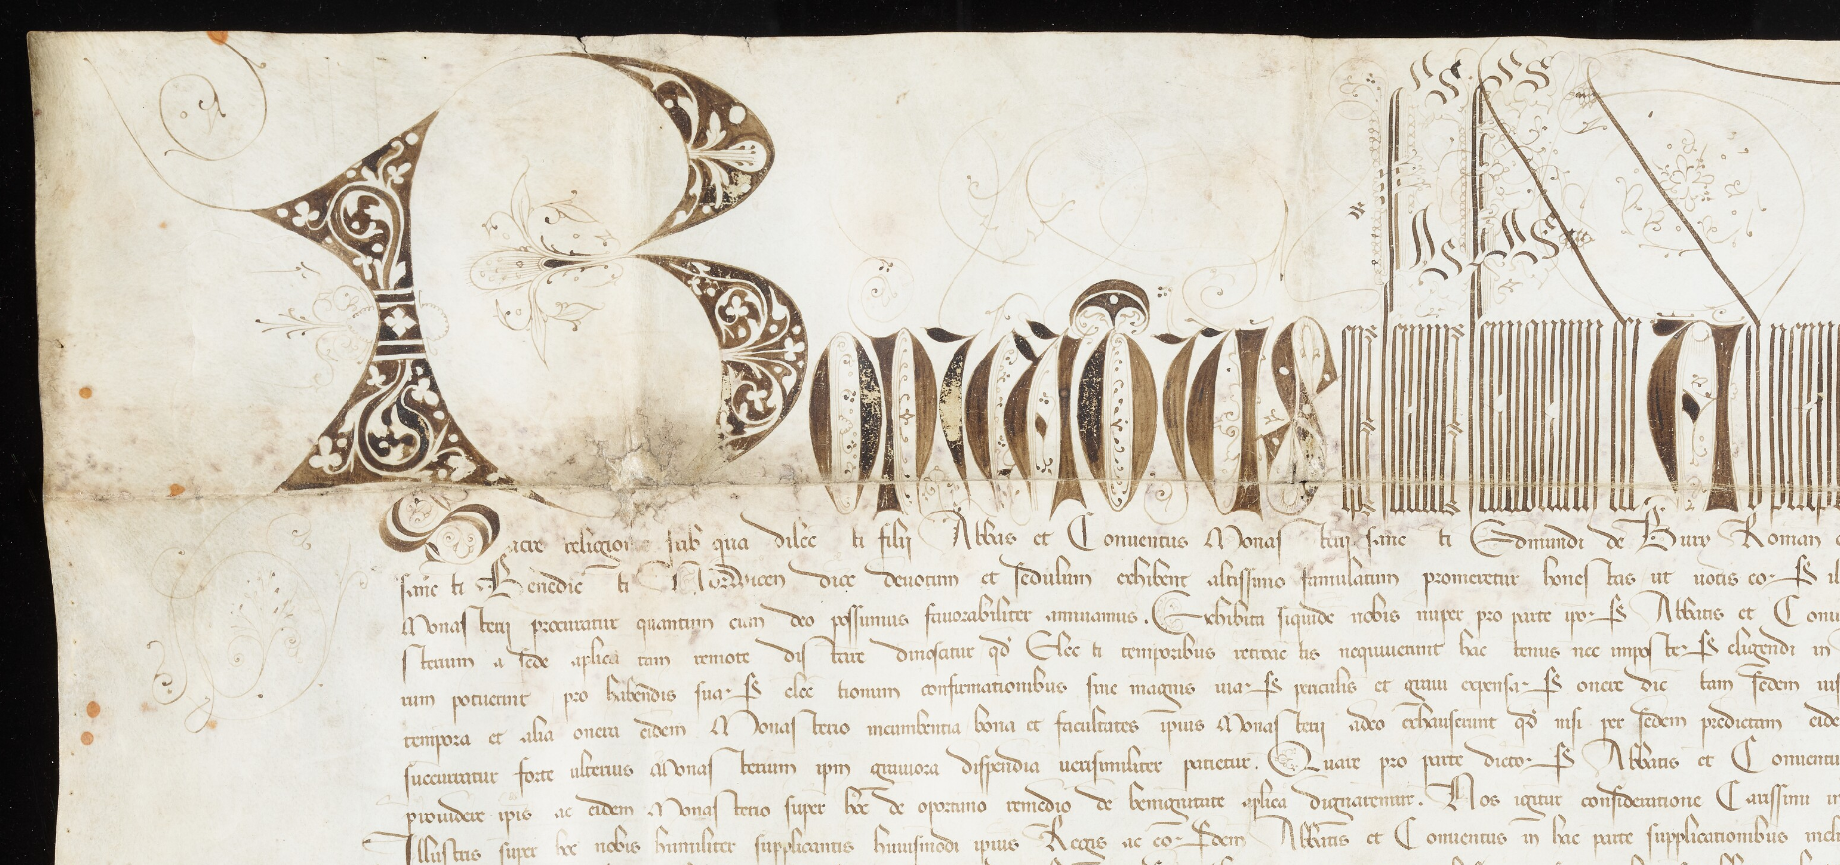 Bonifacius
Sacre religionis sub qua dilecti filii Abbas et Conventus Monasterii sancti Edmundi de Bury Roman
sancti Benedicti Norwicen dioc devotum et sedulum exhibent altissimo famulatum promeretur honestas ut votis eorum
Monasterii procuratur quantum cum deo possumus favorabiliter annuamus. Exhibita siquidem nobis nuper pro parte ipsorum Abbatis et
sterium a sede aplica tam remote distare dinoscatur qd Electi temporibus retroactis nequiverint hactenus nec imposterum eligendi in
rum potuerint pro habendis suarum electionum confirmationibus sine magnis viarum periculis et gravi expensarum onere dictam sedem
tempora et alia onera eidem Monasterio incumbentia bona et facultates ipius Monasterii adeo exhauserunt qd nisi per sedem predictam
succurratur forte ulterius Monasterium ipm graviora dispendia verisimiliter patietur. Quare pro parte dictorum Abbatis et
providere ipis ac eidem Monasterio super hoc de oportuno remedio de benignitate aplica dignaremur. Nos igitur consideratione Carissimi in
Illustris super hoc nobis humiliter supplicantis huiusmodi ipius Regis ac eorundem Abbatis et Conventus in hac parte supplicationibus